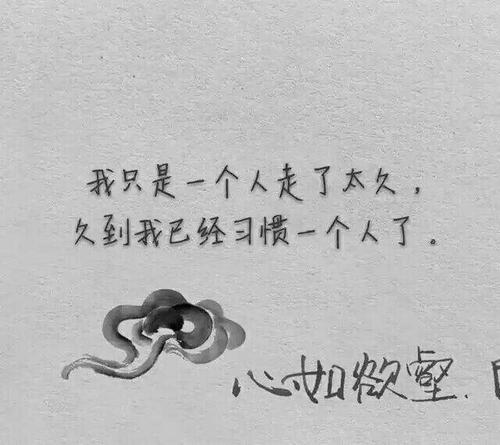 我只是一个人走了太久，
久到我已经习惯一个人了。
心如欲壑.